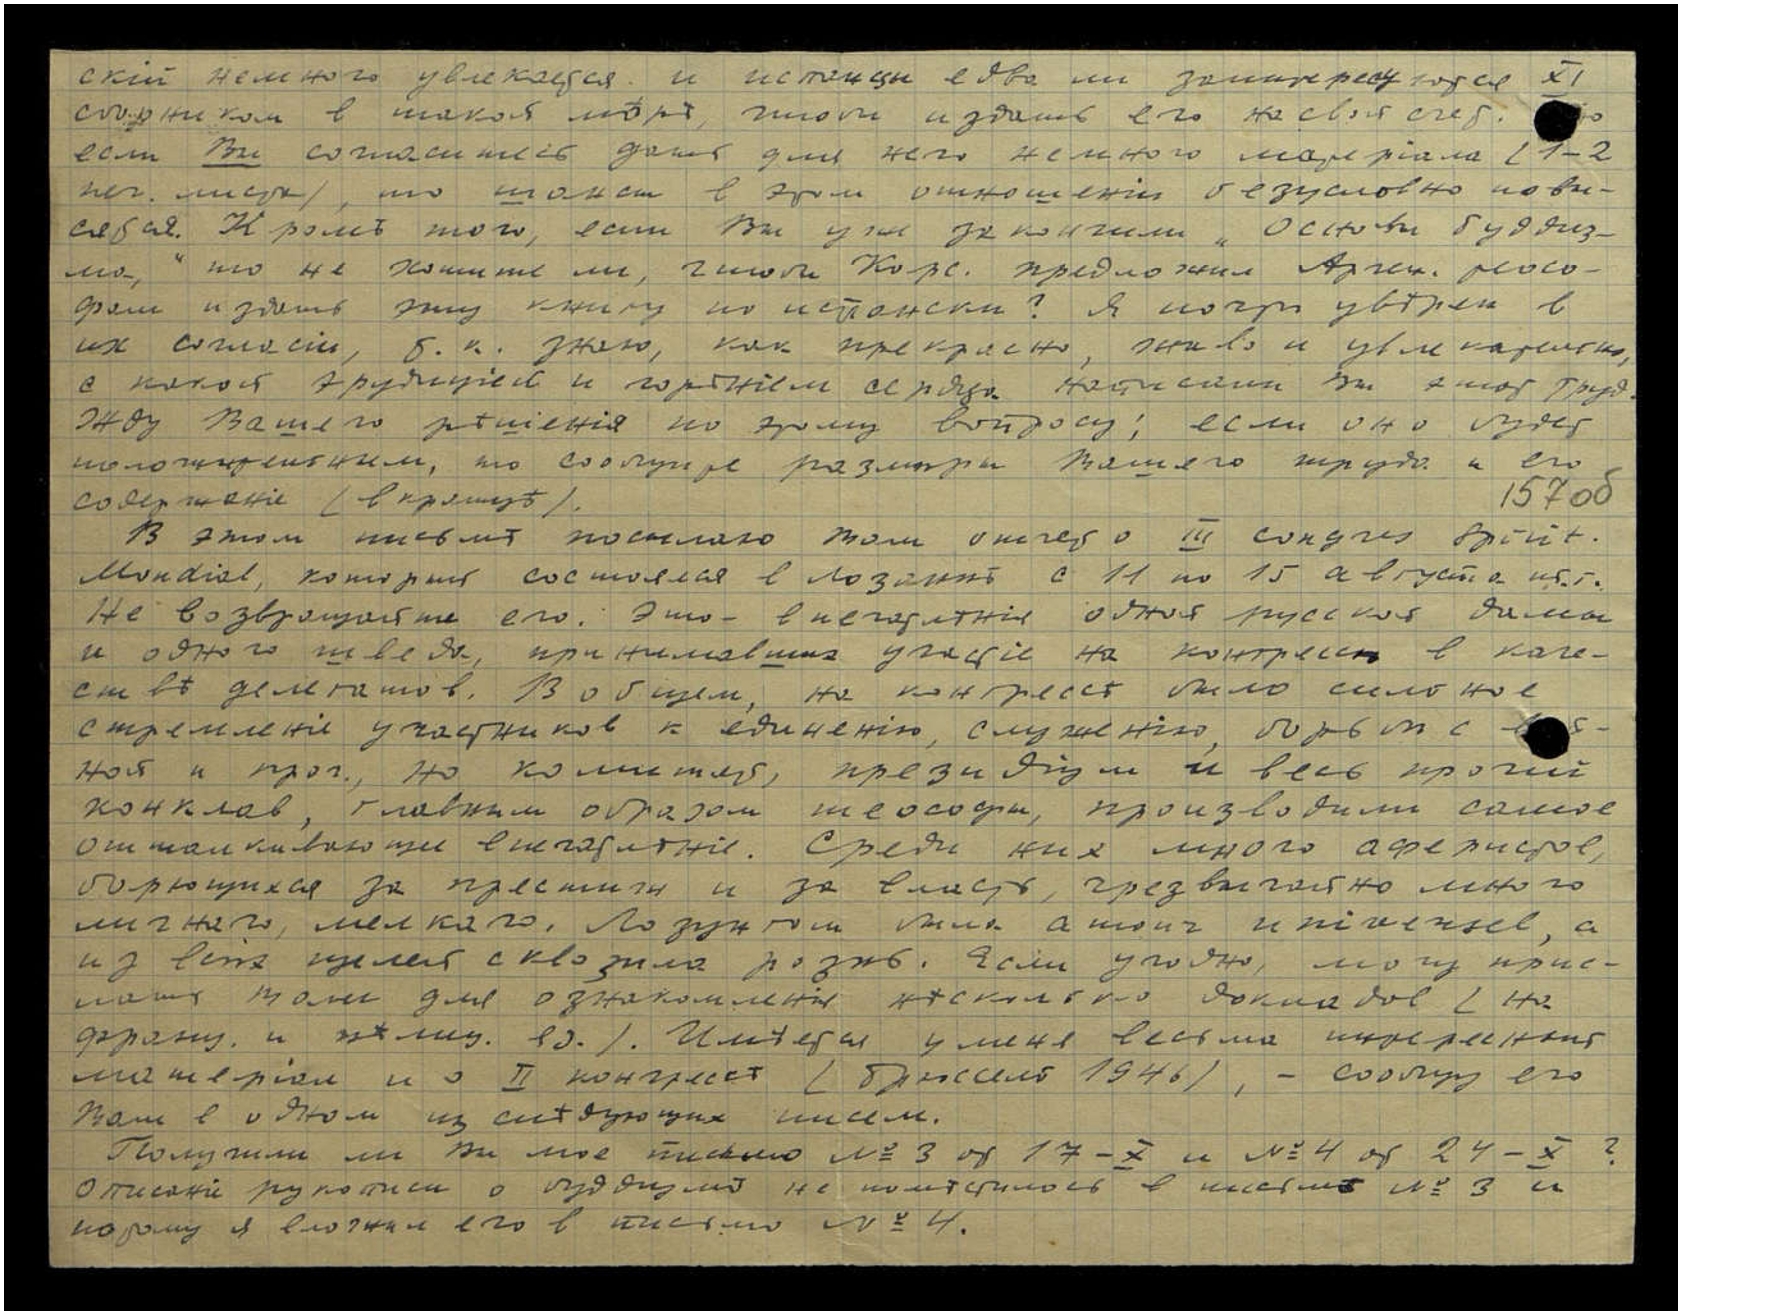 скій немного увлекается и испанцы едва ли заинтересуются XI
сборником в такой мѣрѣ, чтобы издать его на свой счет. Но
если Вы согласитесь дать для него немного матеріала (1-2
печ. листа), то шансы в этом отношеніи безусловно повы-
сятся. Кромѣ того, если Вы уже закончили „Основы буддиз-
ма," то не хотите ли, чтобы Корс. предложил Арген. теосо-
фам издать эту книгу по испански? Я почти увѣрен в
их согласіи, т.к. знаю, как прекрасно, живо и увлекательно,
с какой эрудиціей и горѣніем сердца написали Вы этот труд.
Жду Вашего рѣшенія по этому вопросу; если оно будет
положительным, то сообщите размѣры Вашего труда и его
содержаніе (вкратцѣ).
157об
В этом письмѣ посылаю Вам отчет о III congres Spirit.
Mondial, который состоялся в Лозаннѣ с 11 по 15 августа
Не возвращайте его. Это - впечатлѣнія одной русской дамы
и одного шведа, принимавших участіе на конгрессѣ в каче-
ствѣ делегатов. В общем, на конгрессѣ было сильное
стремленіе участников к единенію, служенію, борьбѣ с
ной и проч., но комитет, президіум и весь прочій
конклав, главным образом теософы, производили самое
отталкивающее впечатлѣніе. Среди них много аферистов,
борющихся за престиж и за власть, чрезвычайно много
личнаго, мелкаго. Лозунгом была amour universel, а
из всѣх щелей сквозила рознь. Если угодно, могу прис-
лать Вам для ознакомленія нѣсколько докладов (на
франц. и нѣмец. яз.). Имѣется у меня весьма интересный
матеріал и о II конгрессѣ (Брюссель 1946), - сообщу его
Вам в одном из слѣдующих писем.
Получили ли Вы мое письмо № 3 от 17-X и № 4 от 24-X ?
Описаніе рукописи о буддизмѣ не помѣстилось в письмѣ № 3 и
потому я вложил его в письмо № 4.